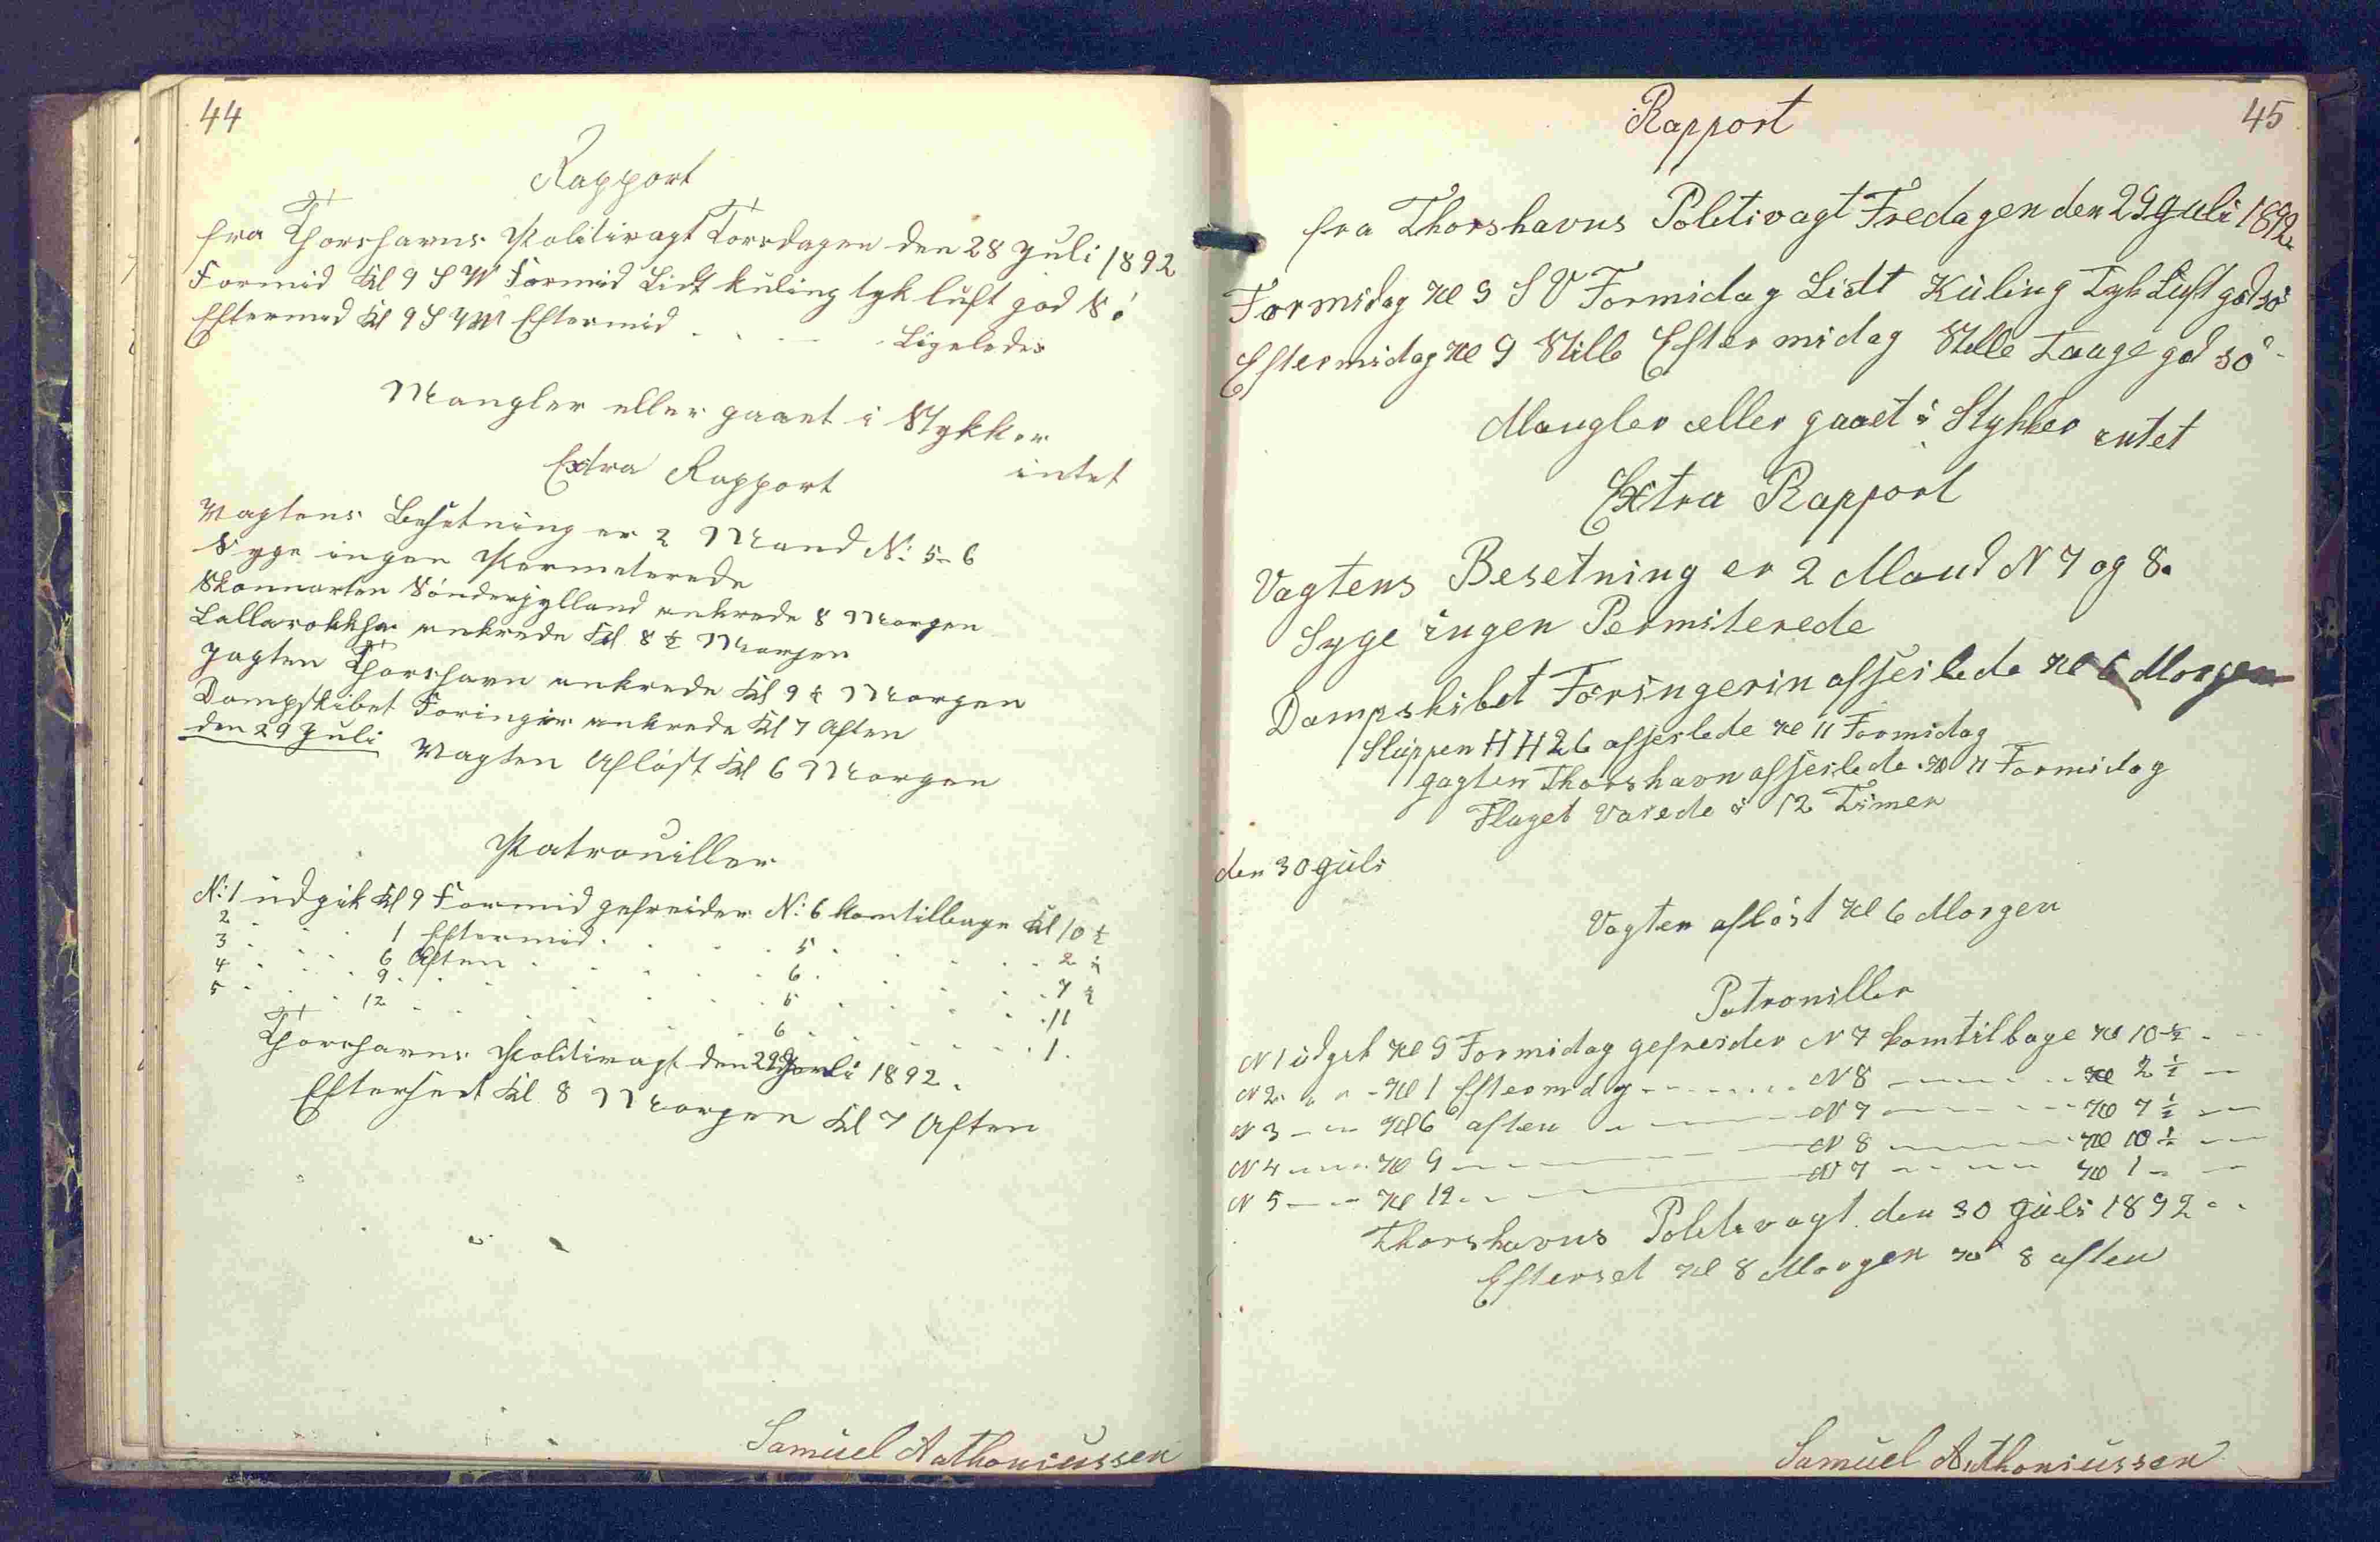 44
Rapport
fra Thorshavns Politivagt Torsdagen den 28 Juli 1892
Formid Kl 9 S W Formid Lidt kuling tyk luft god Sö
Eftermed Kl 9 S Eftermid - - Ligeledes
Mangler eller gaaet i Stykker
intet
Extra Rapport
Vagtens Besetning er 2 Mand No: 5-6
Syge ingen Permeterede
Skonnarten Sönderjylland ankrede 8 Morgen
Lallarokkha ankrede Kl 8 ½ Morgen
Jagten Thorshavn ankrede Kl 9 ½ Morgen
Dampskibet Foringer ankrede Kl 7 Aften
den 29 Juli
Vagten Aflöst Kl 6 Morgen
Patrouiller
No: 1 udgik Kl 9 Formid gefreider No: 6 komtilbage Kl 10 ½
2 - - - 1 Eftermid - - - 5 - - - 2 ½
3 - - - 6 Aften - - - 6 - - - 7 ½
4 - - - 9 - - - 5 - - - 11
5 - - - 12 - - - 6 - - - 1
Thorshavns Politivagt den 29 Juli 1892.
Efterset Kl 8 Morgen Kl 7 Aften
Samuel Anthoniussen
45
Rapport
fra Thorshavns Politivagt Fredagen den 29 Juli 1892
Formidag Kl 9 S V Formidag Lidt Kuling Tyk Luft god sö
Eftermidag Kl 9 Stille Eftermidag Stille Taage god sö
Mangler eller gaaet i Stykker intet
Extra Rapport
Vagtens Besetning er 2 Mand N 7 og 8.
Syge ingen Permiterede
Dampskibet Föringerin afseilede Kl 6 Morgen
Sluppen HH 26 afseilede Kl 11 Formidag
Jagten Thorshavn afseilede Kl 11 Formidag
Flaget Varede i 12 Timer
den 30 Juli
Vagten aflöst Kl 6 Morgen
Patrouiller
N 1 udgik Kl 9 Formidag gefreider N 7 komtilbage Kl 10 ½ - -
N 2 - - - Kl 1 Eftermdg - - - N 8 - - - Kl 2 ½ -
N 3 - - Kl 6 aften - - - N 7 - - - Kl 7 ½ - -
N 4 - - - Kl 9 - - - N 8 - - - Kl 10 ½ - -
N 5 - - Kl 12 - - - N 7 - - - Kl 1 - -
Thorshavns Politivagt den 30 Juli 1892 - -
Efterset Kl 8 Morgen Kl 8 aften
Samuel Anthoniussen